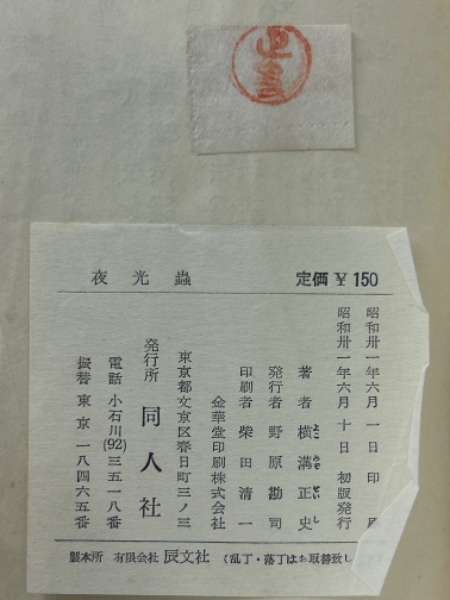 正史
夜光蟲 定価￥150
昭和卅一年六月一日印
昭和卅一年六月十日初版発行
著者 横溝正史
発行者 野原勘司
印刷者 柴田清一
金華堂印刷株式会社
東京都文京区春日町三ノ三
発行所 同人社
電話 小石川(92)三五一八番
振替 東京一八四六五番
製本所 有限会社 辰文社 (乱丁・落丁はお取替致し